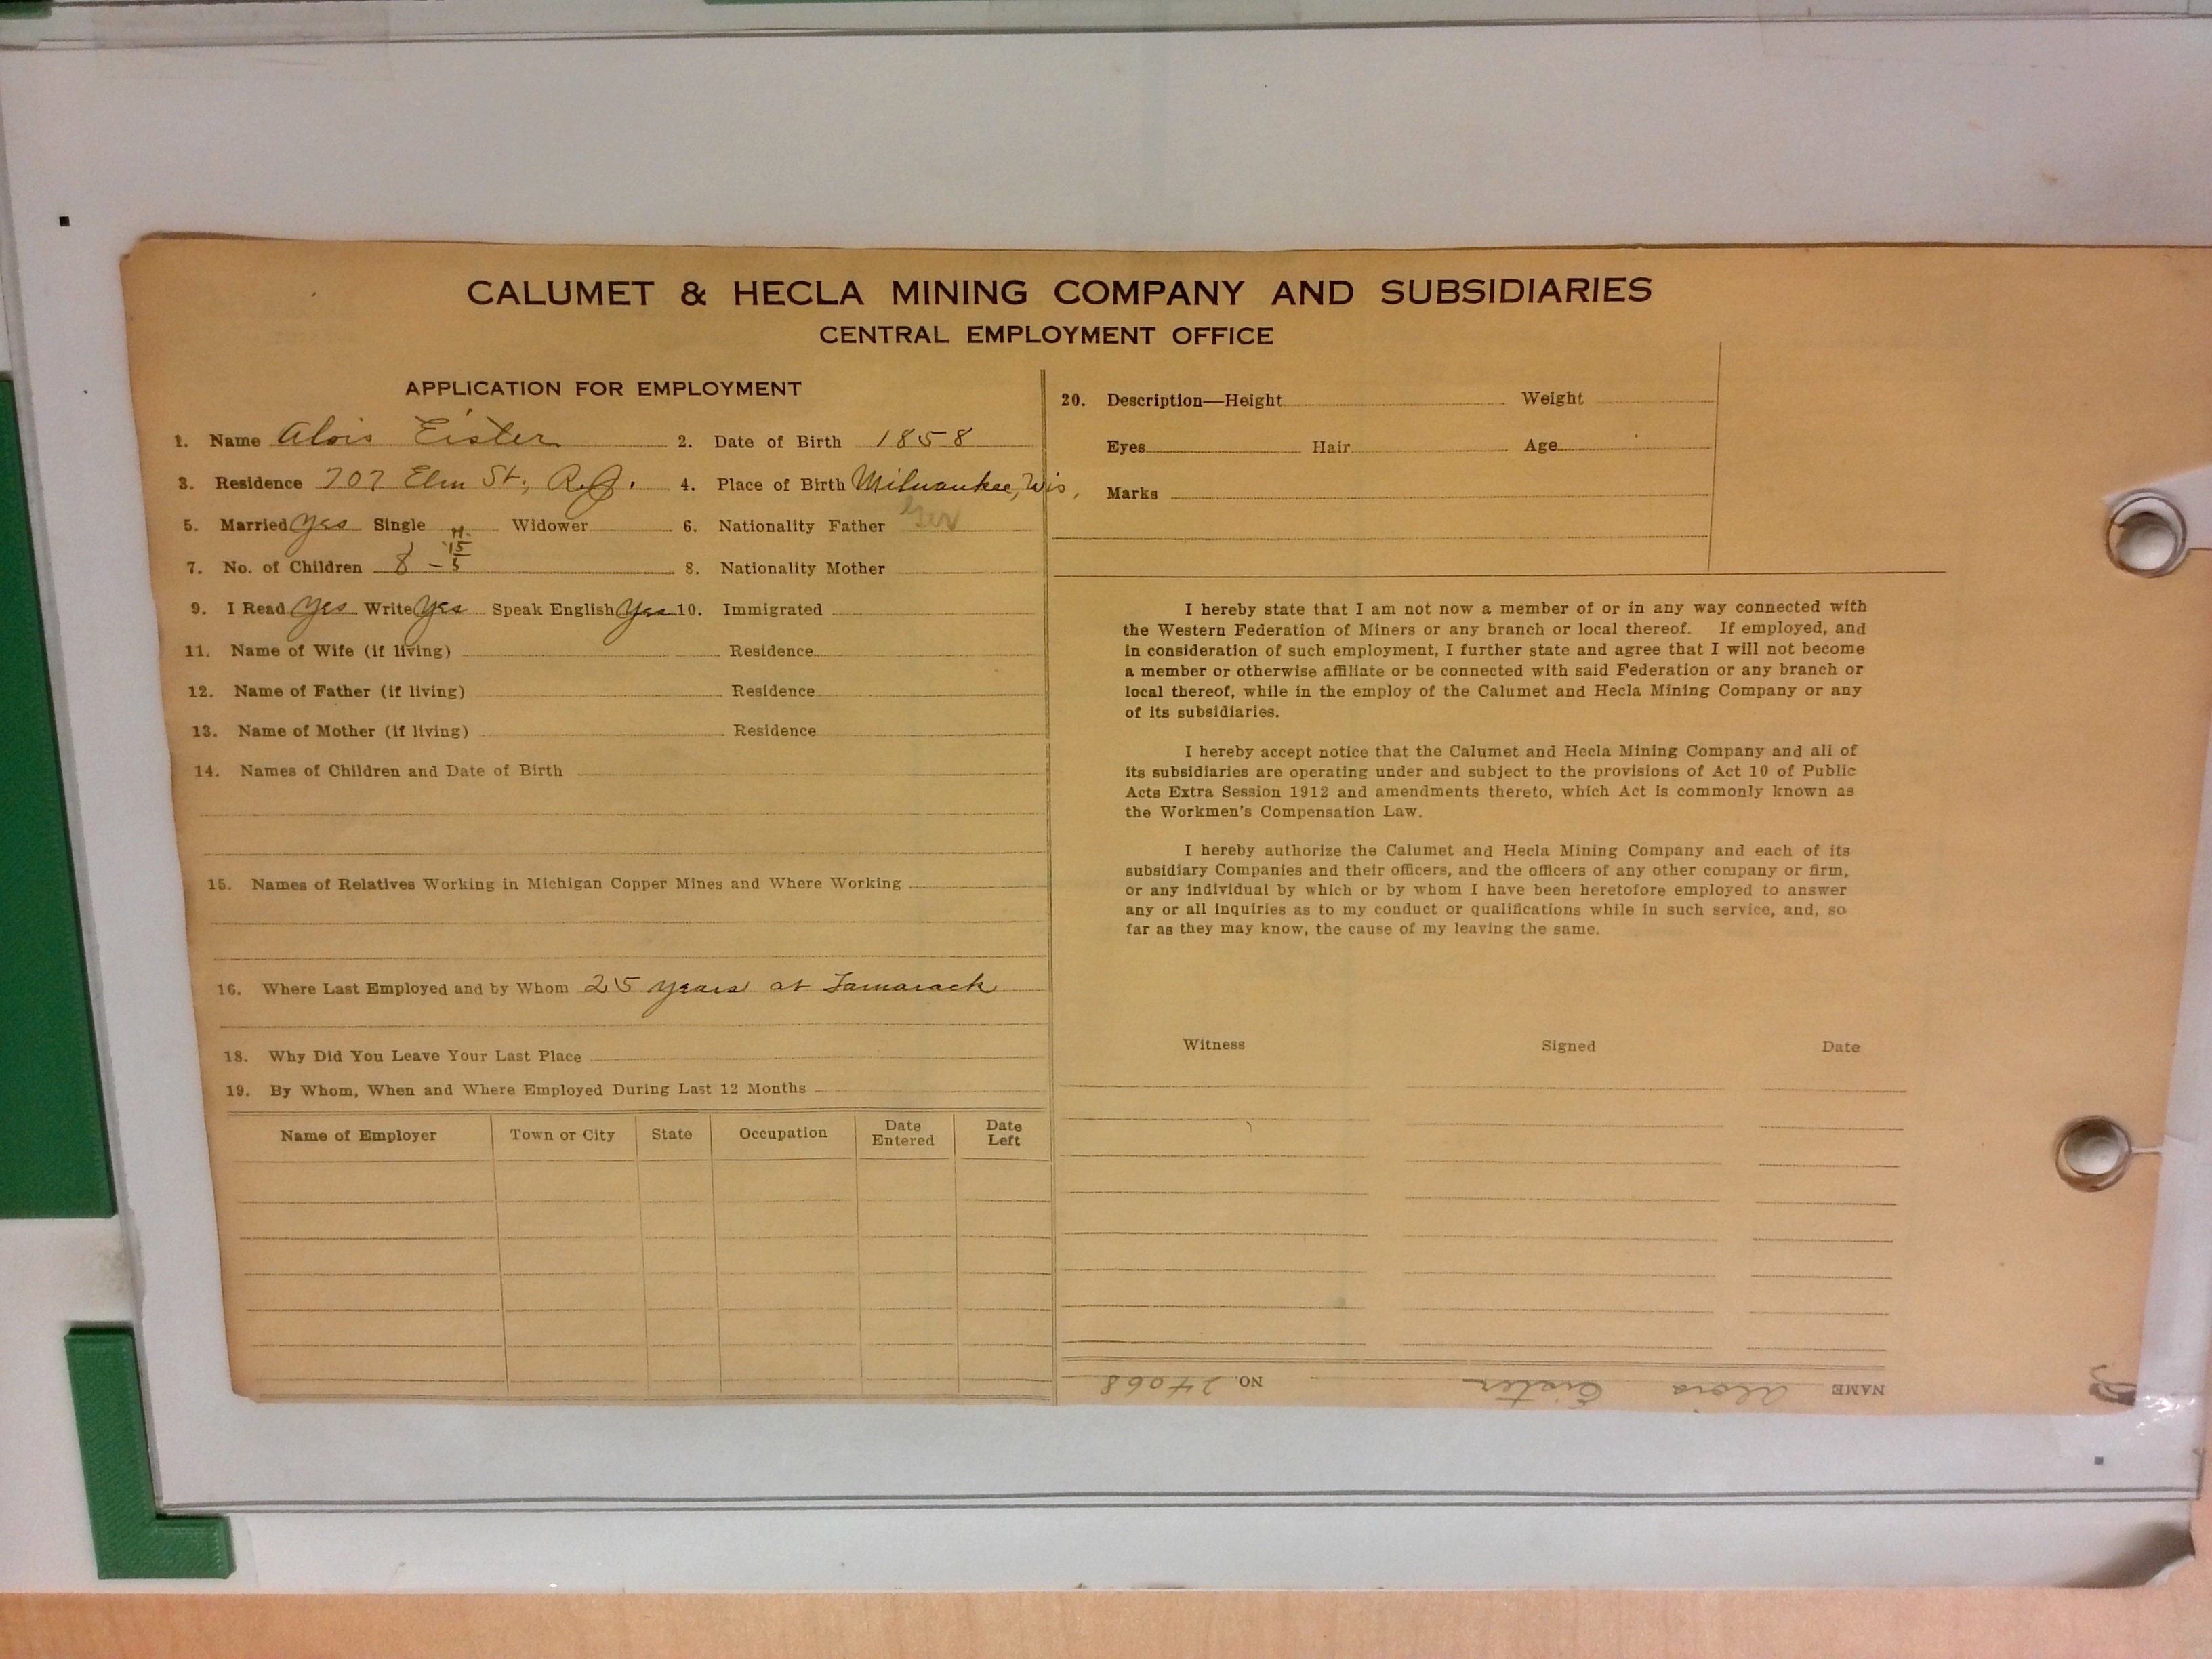 CALUMET & HECLA MINING COMPANY AND SUBSIDIARIES
CENTRAL EMPLOYMENT OFFICE
APPLICATION FOR EMPLOYMENT
1. Name Alois Eister 2. Date of Birth 1858
3. Residence 707 Elm St., 4. Place of Birth Milwaukee, Wis.
5. Married yes Single Widower 6. Nationality Father Ger
7. No. of Children 8 – 15 8. Nationality Mother
9. I Read yes Write yes Speak English yes 10. Immigrated
11. Name of Wife (if living) Residence
12. Name of Father (if living) Residence
13. Name of Mother (if living) Residence
14. Names of Children and Date of Birth
15. Names of Relatives Working in Michigan Copper Mines and Where Working
16. Where Last Employed and by Whom 25 years at Tamarack
18. Why Did You Leave Your Last Place
19. By Whom, When and Where Employed During Last 12 Months
Name of Employer Town or City State Occupation Date Entered Date Left
20. Description—Height Weight
Eyes Hair Age
Marks
I hereby state that I am not now a member of or in any way connected with
the Western Federation of Miners or any branch or local thereof. If employed, and
in consideration of such employment, I further state and agree that I will not become
a member or otherwise affiliate or be connected with said Federation or any branch or
local thereof, while in the employ of the Calumet and Hecla Mining Company or any
of its subsidiaries.
I hereby accept notice that the Calumet and Hecla Mining Company and all of
its subsidiaries are operating under and subject to the provisions of Act 10 of Public
Acts Extra Session 1912 and amendments thereto, which Act is commonly known as
the Workmen's Compensation Law.
I hereby authorize the Calumet and Hecla Mining Company and each of its
subsidiary Companies and their officers, and the officers of any other company or firm,
or any individual by which or by whom I have been heretofore employed to answer
any or all inquiries as to my conduct or qualifications while in such service, and, so
far as they may know, the cause of my leaving the same.
Witness Signed Date
NAME Alois Eister NO. 24068